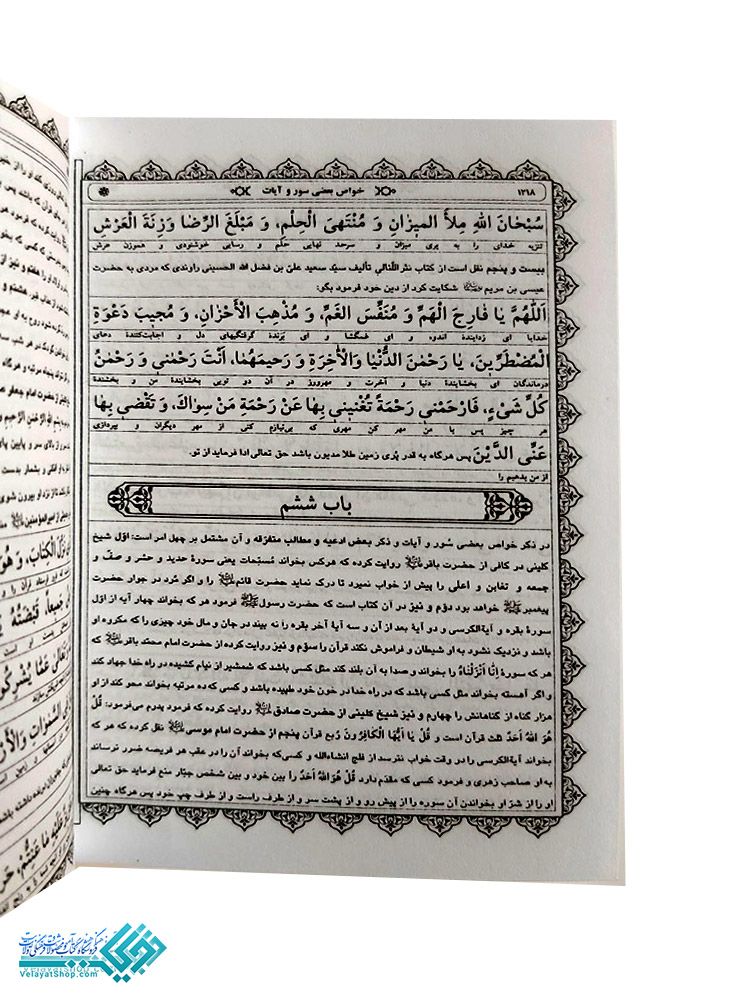 ۱۲۱۸
خواص بعضی سور و آیات
سُبْحَانَ اللهِ مِلأَ الْمیزٰانِ وَ مُنْتَهیَ الْحِلْمِ، وَ مَبْلَغَ الرِّضٰا وَزِنَةَ الْعَرْشِ
تنزیه خدای را به پری میزان و سرحد نهایی حلم و رسایی خوشنودی و هموزن عرش
بیست و پنجم نقل است از کتاب نثراللئالی تألیف سیّد سعید علیّ بن فضل الله الحسینی راوندی که مردی به حضرت
عیسی بن مریم شکایت کرد از دین خود فرمود بگو:
اَللّٰهُمَّ یٰا فٰارِجَ الْهَمِّ وَ مُنَفِّسَ الْغَمِّ، وَ مُذْهِبَ الْأَحْزٰانِ، وَ مُجیبَ دَعْوَةِ
خدایا ای زداینده اندوه و ای غمگشا و ای برنده گرفتگیهای دل و اجابت‌کنندهٔ دعای
الْمُضْطَرّینَ، یٰا رَحْمٰنَ الدُّنْیٰا وَالْآخِرَةِ وَ رَحیمَهُمٰا، اَنْتَ رَحْمٰنی وَ رَحْمٰنُ
درماندگان ای بخشایندهٔ دنیا و آخرت و مهرورز در آن دو تویی بخشایندهٔ من و بخشندهٔ
کُلِّ شَیْءٍ، فَارْحَمْنی رَحْمَةً تُغْنینی بِهٰا عَنْ رَحْمَةِ مَنْ سِوٰاكَ، وَ تَقْضی بِهٰا
هر چیز پس با من مهر کن مهری که بی‌نیازم کنی از مهر دیگران و بپردازی
عَنِّی الدَّیْنَ پس هرگاه به قدر پُری زمین طلا مدیون باشد حق تعالی ادا فرماید از تو.
از من بدهیم را
باب ششم
در ذکر خواص بعضی سُور و آیات و ذکر بعض ادعیه و مطالب متفرّقه و آن مشتمل بر چهل امر است: اوّل شیخ
کلینی در کافی از حضرت باقر روایت کرده که هرکس بخواند مُسبّحات یعنی سورهٔ حدید و حشر و صفّ و
جمعه و تغابن و اعلی را پیش از خواب نمیرد تا درک نماید حضرت قائم را و اگر مُرد در جوار حضرت
پیغمبر خواهد بود دوّم و نیز در آن کتاب است که حضرت رسول فرمود هر که بخواند چهار آیه از اوّل
سورهٔ بقره و آیةالکرسی و دو آیهٔ بعد از آن و سه آیهٔ آخر بقره را نه بیند در جان و مال خود چیزی را که مکروه او
باشد و نزدیک نشود به او شیطان و فراموش نکند قرآن را سوّم و نیز روایت کرده از حضرت امام محمّد باقر که
هر که سورهٔ اِنّٰا اَنْزَلْنٰاهُ را بخواند و صدا به آن بلند کند مثل کسی باشد که شمشیر از نیام کشیده در راه خدا جهاد کند
و اگر آهسته بخواند مثل کسی باشد که در راه خدا در خون خود طپیده باشد و کسی که ده مرتبه بخواند محو کند از او
هزار گناه از گناهانش را چهارم و نیز شیخ کلینی از حضرت صادق روایت کرده که فرمود پدرم می‌فرمود: قُلْ
هُوَ اللهُ اَحَدٌ ثلث قرآن است و قُلْ یٰا اَیُّهَا الْکٰافِرُونَ رُبع قرآن پنجم از حضرت امام موسی نقل کرده که هر که
بخواند آیةالکرسی را در وقت خواب نترسد از فلج انشاءالله و کسی‌که بخواند آن را در عقب هر فریضه ضرر نرساند
به‌او صاحب زهری و فرمود کسی که مقدّم دارد قُلْ هُوَ اللهُ اَحَدٌ را بین خود و بین شخص جبّار منع فرماید حق تعالی
او را از شرّ او بخواندن آن سوره را از پیش رو و از پشت سر و از طرف راست و از طرف چپ خود پس هرگاه چنین
VelayatShop.com